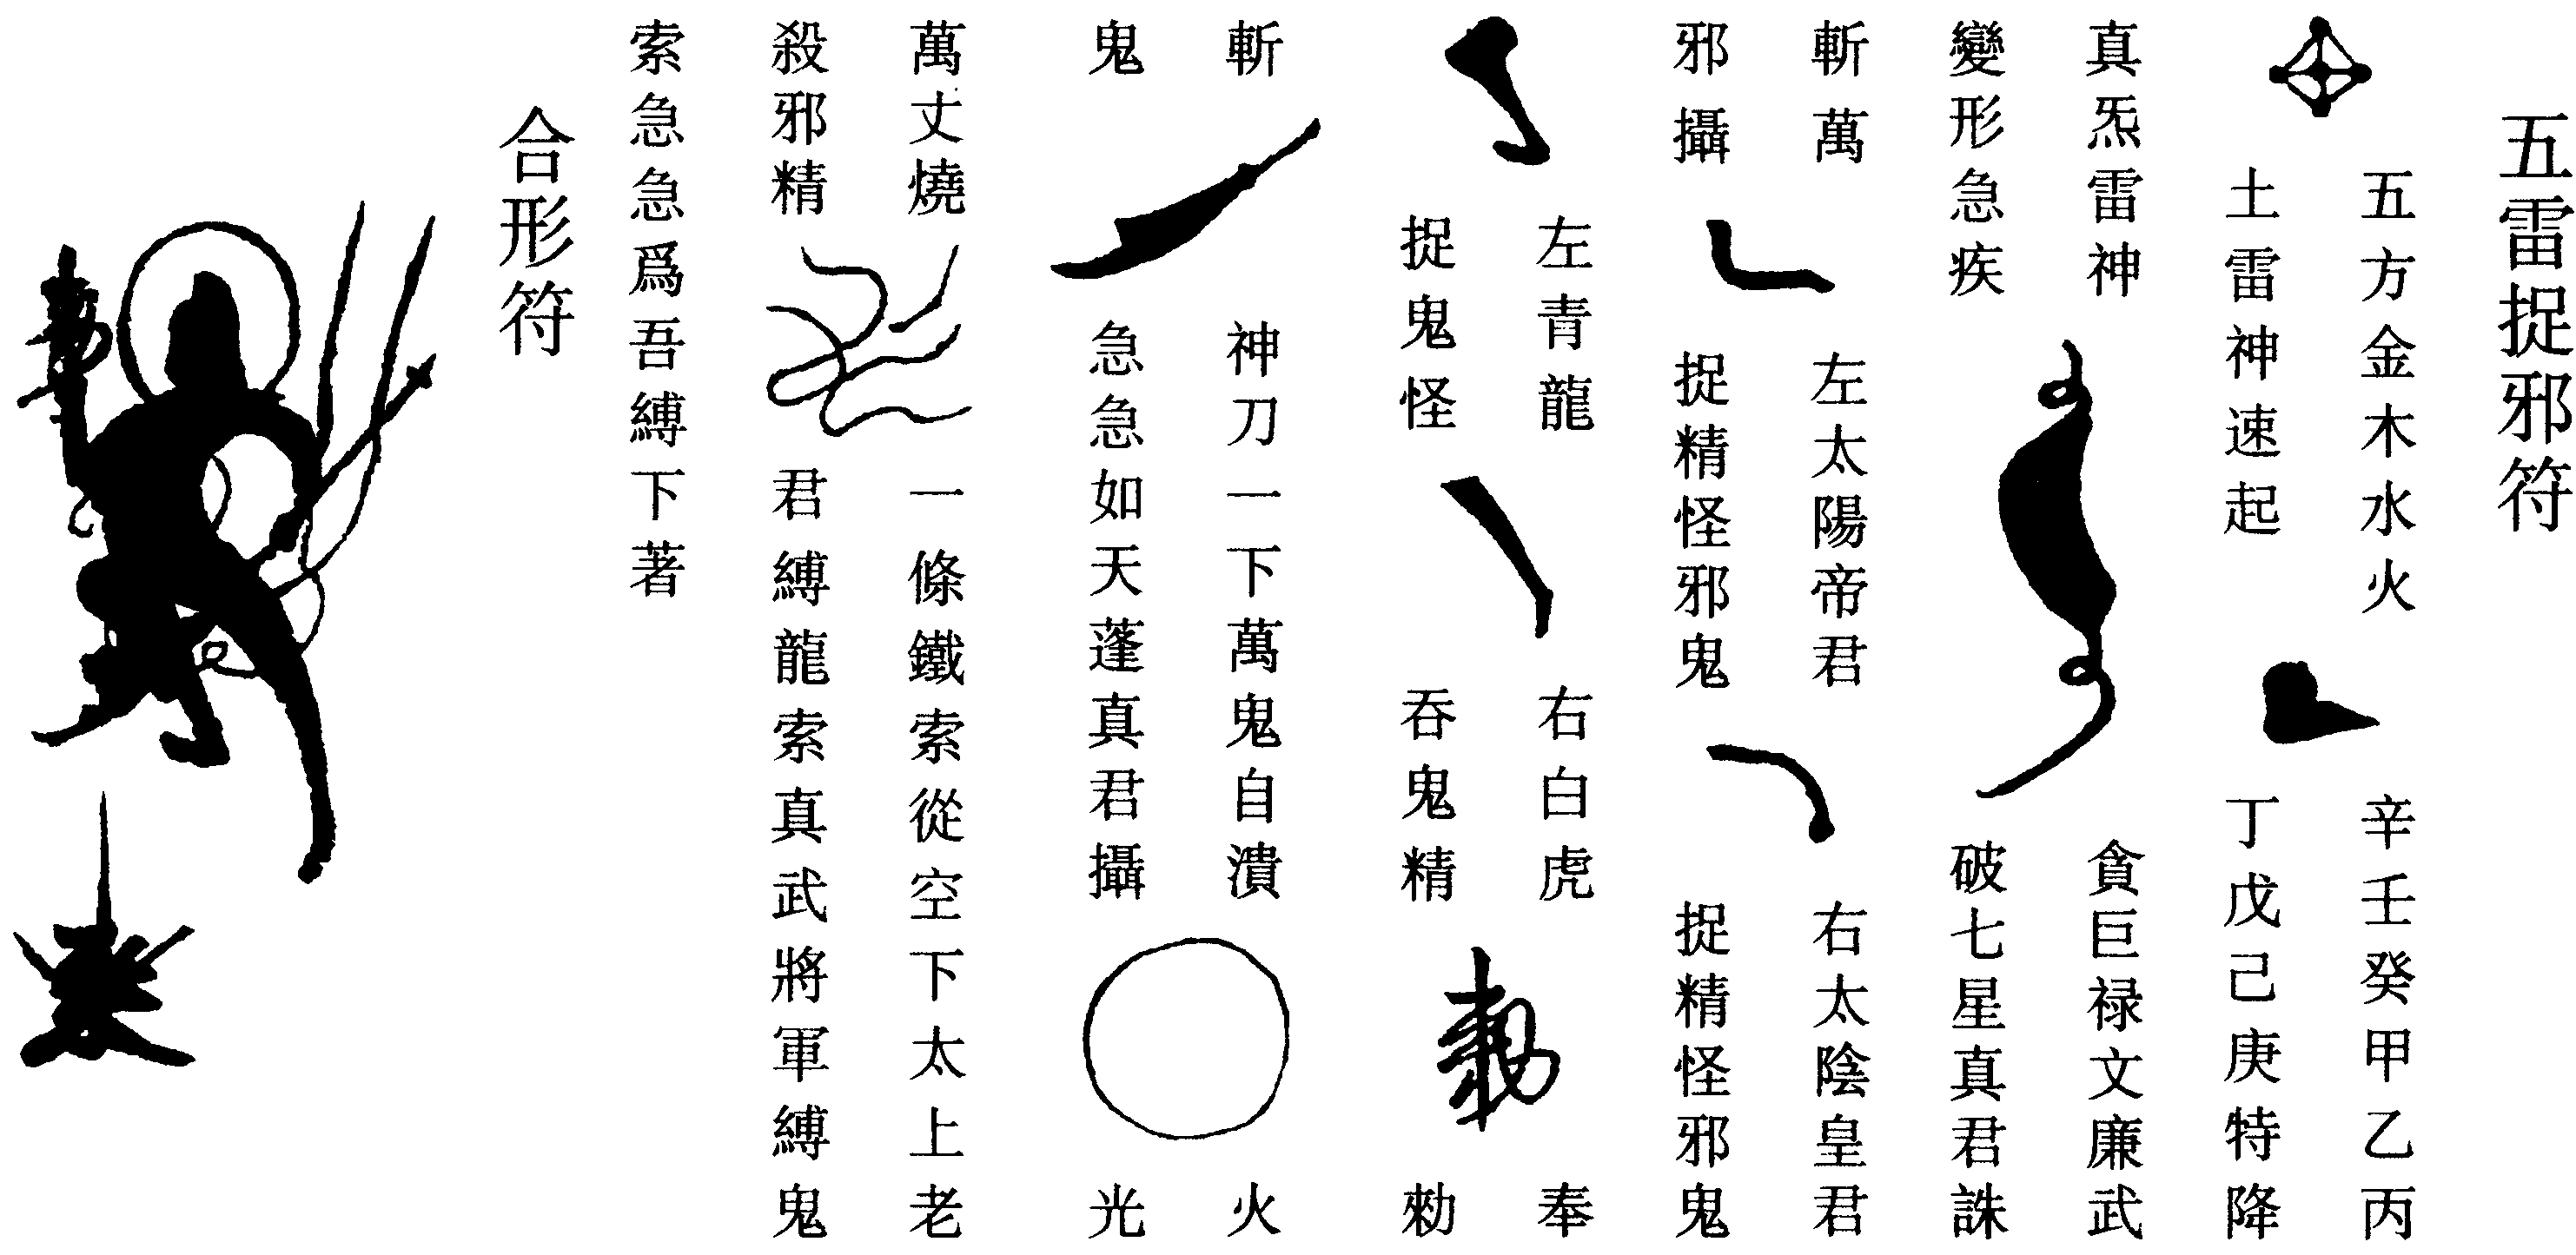 五雷捉邪符
五方金木水火
土雷神速起
辛壬癸甲乙丙
丁戊己庚特降
真炁雷神
變形急疾
貪巨禄文廉武
破七星真君誅
斬萬
邪攝
左太陽帝君
捉精怪邪鬼
右太陰皇君
捉精怪邪鬼
左青龍
捉鬼怪
右白虎
吞鬼精
奉
勑
斬
鬼
神刀一下萬鬼自潰
急急如天蓬真君攝
火
光
萬丈燒
殺邪精
一條鐵索從空下太上老
君縛龍索真武將軍縛鬼
索急急爲吾縛下著
合形符